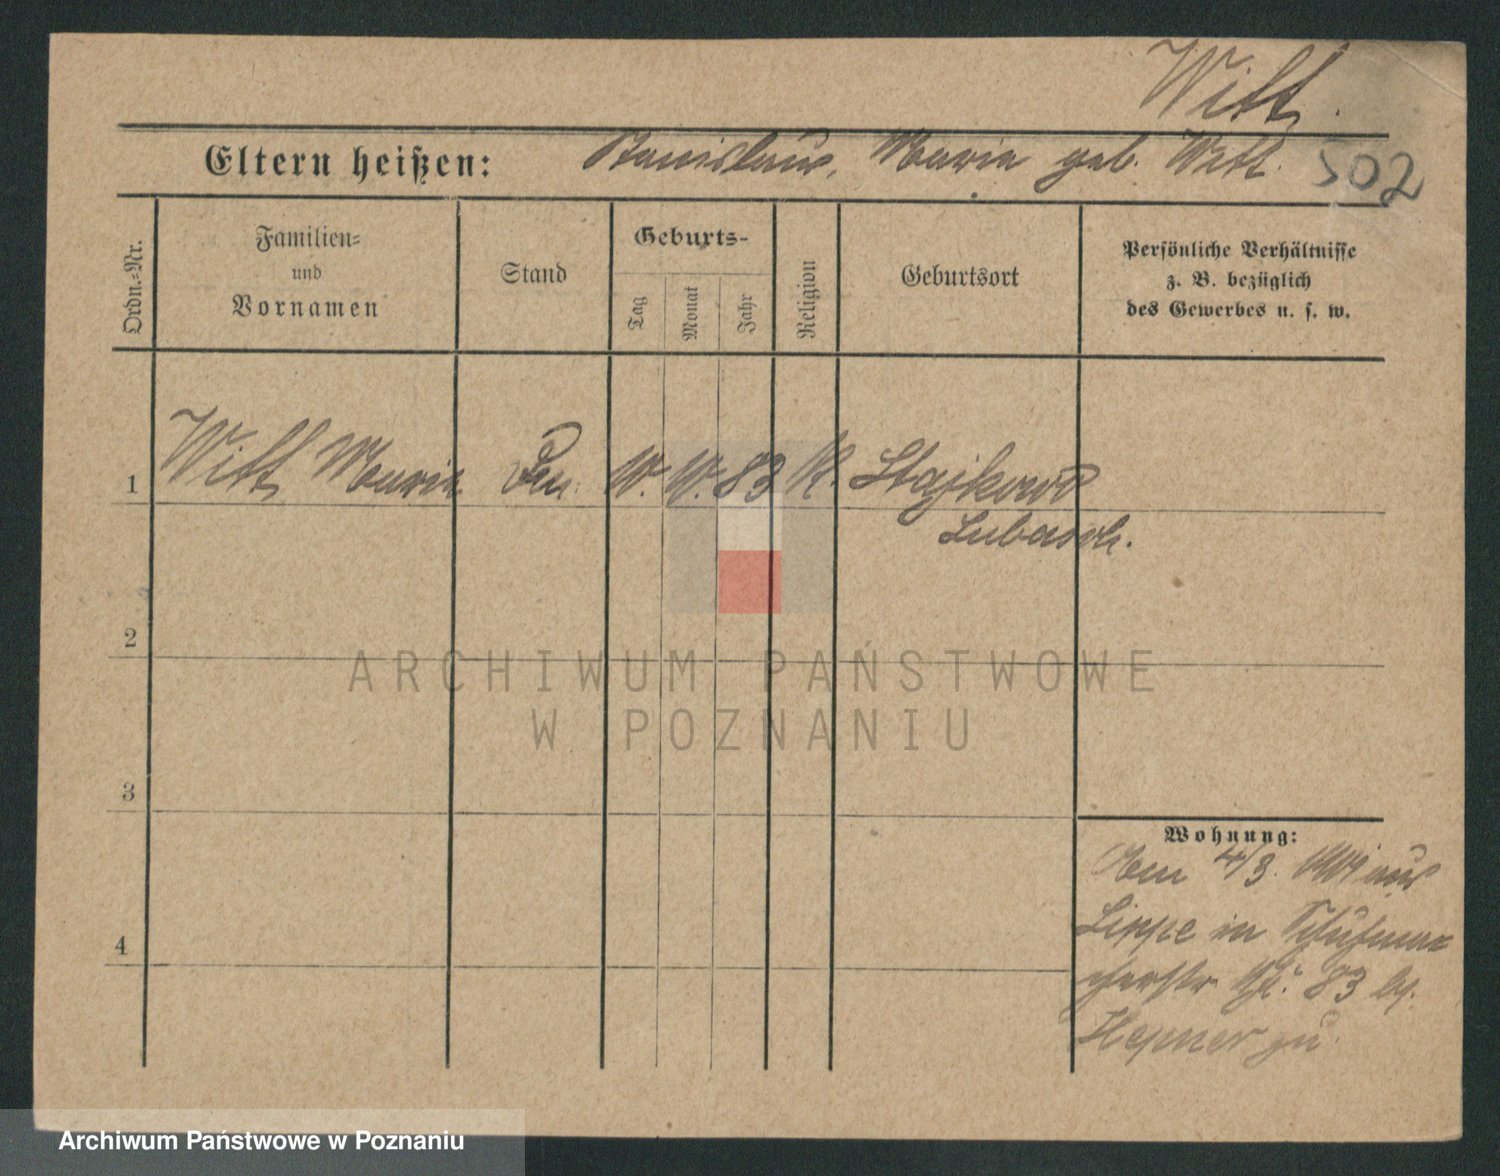 Witt.
Eltern heißen: Stanislaus, Maria geb. Witt. 502
Ordn.-Nr.
Familien-
und
Vornamen
Stand
Geburts-
Tag
Monat
Jahr
Religion
Geburtsort
Persönliche Verhältnisse
z. B. bezüglich
des Gewerbes u. s. w.
1 Witt Maria 83 K. Stajkowo
Lubasch.
2
ARCHIWUM PAŃSTWOWE
W POZNANIU
3
4
Wohnung:
4/3. aus
Lippe in Schuhma-
cherstr. 83 bei
Hepner zu
Archiwum Państwowe w Poznaniu